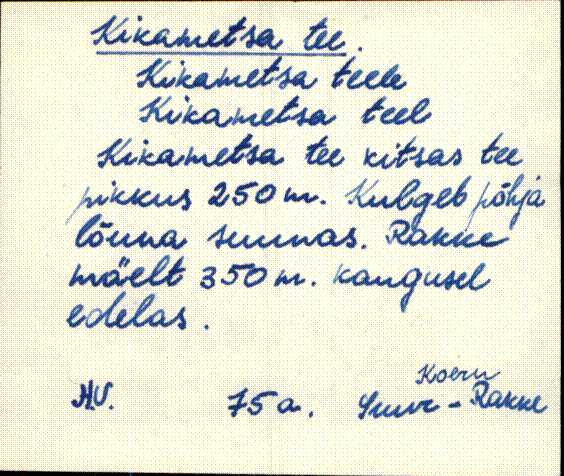 Kikametsa tee.
Kikametsa teele
Kikametsa teel
Kikametsa tee kitsas tee
pikkus 250 m. Kulgeb põhja
lõuna suunas. Rakke
mäelt 350 m. kaugusel
edelas.
Koeru
H.V. 75 a. Suur-Rakke